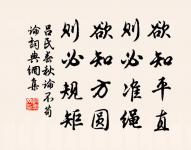 欲知平直
则必准绳
欲知方圆
则必规矩
吕氏春秋论不苟
论词典网集